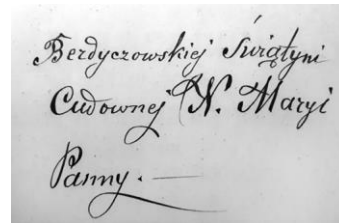 Berdyczowskiej Świątyni
Cudownej N. Maryi
Panny.